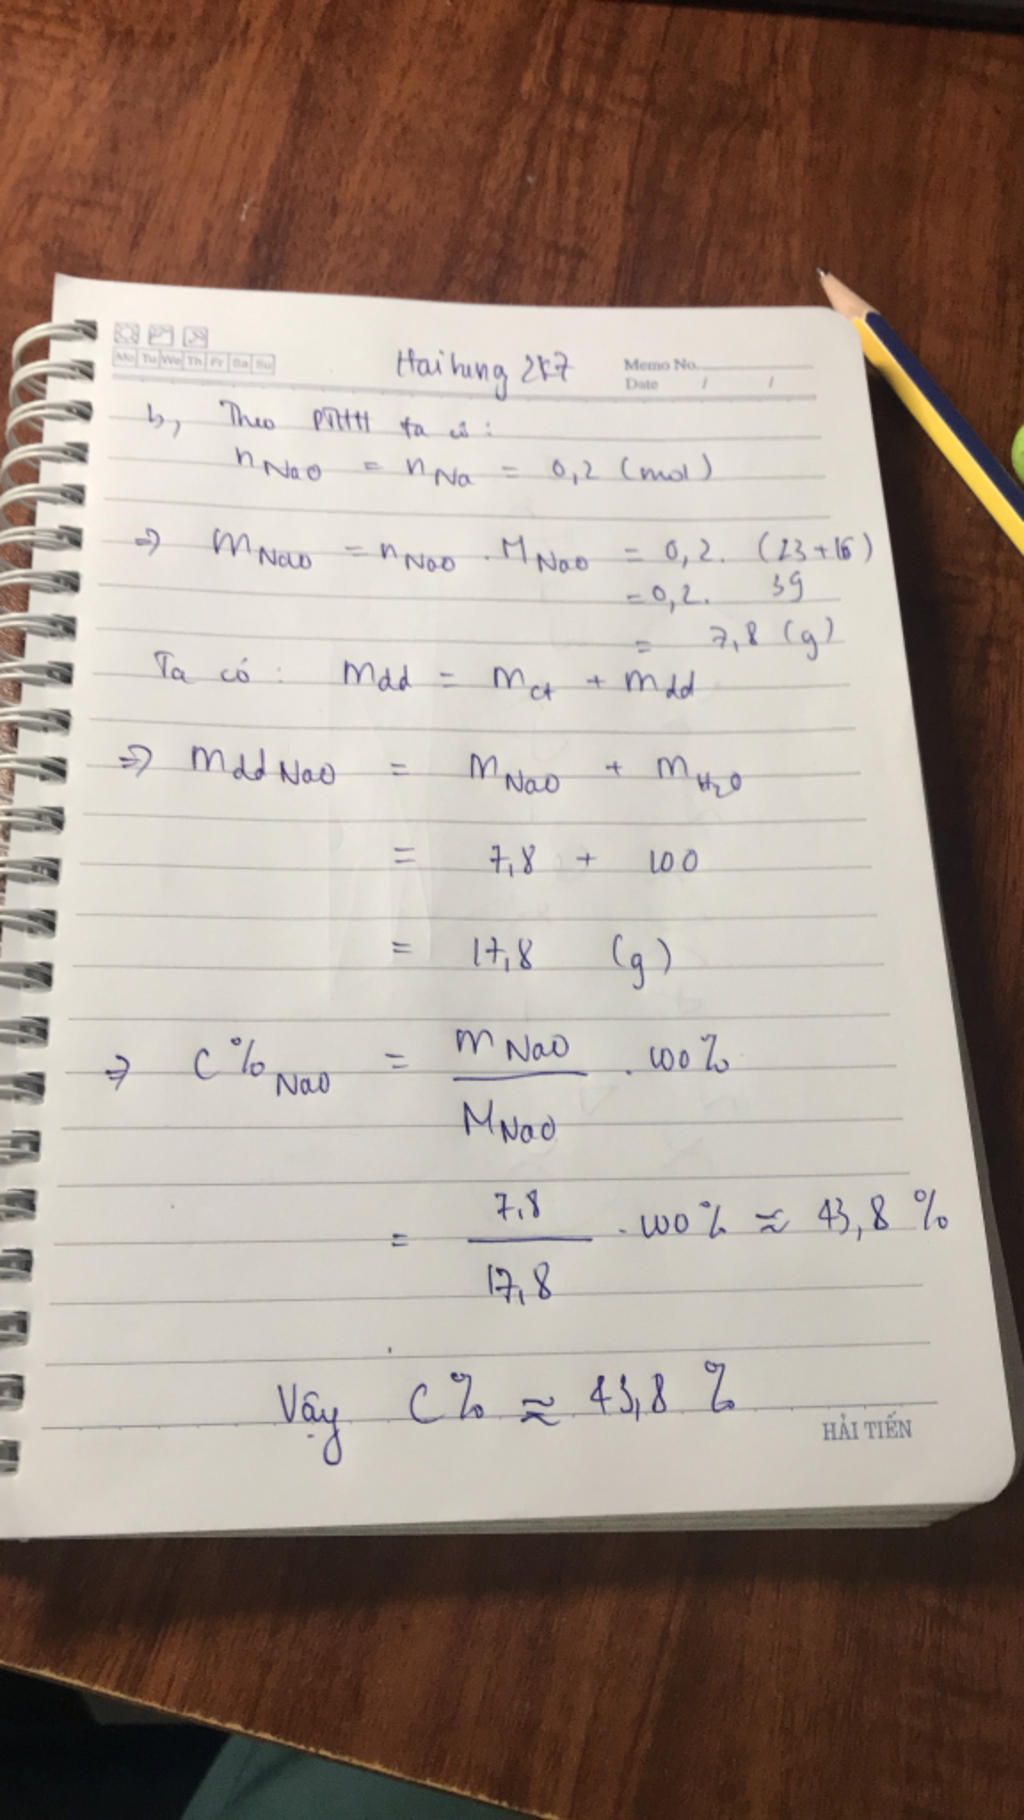 Mo Tu We Th Fr Sa Su
Hai hung 2k7
Memo No.
Date / /
b, Theo PTHH ta có:
nNaO = nNa = 0,2 (mol)
=> mNaO = nNaO . MNaO = 0,2. (23+16)
= 0,2. 39
= 7,8 (g)
Ta có: mdd = mct + mdd
=> mddNaO = mNaO + mH2O
= 7,8 + 100
= 17,8 (g)
=> C%NaO = mNaO / MNaO . 100%
= 7,8 / 17,8 . 100% ≈ 43,8 %
Vậy C% ≈ 43,8 %
HẢI TIẾN